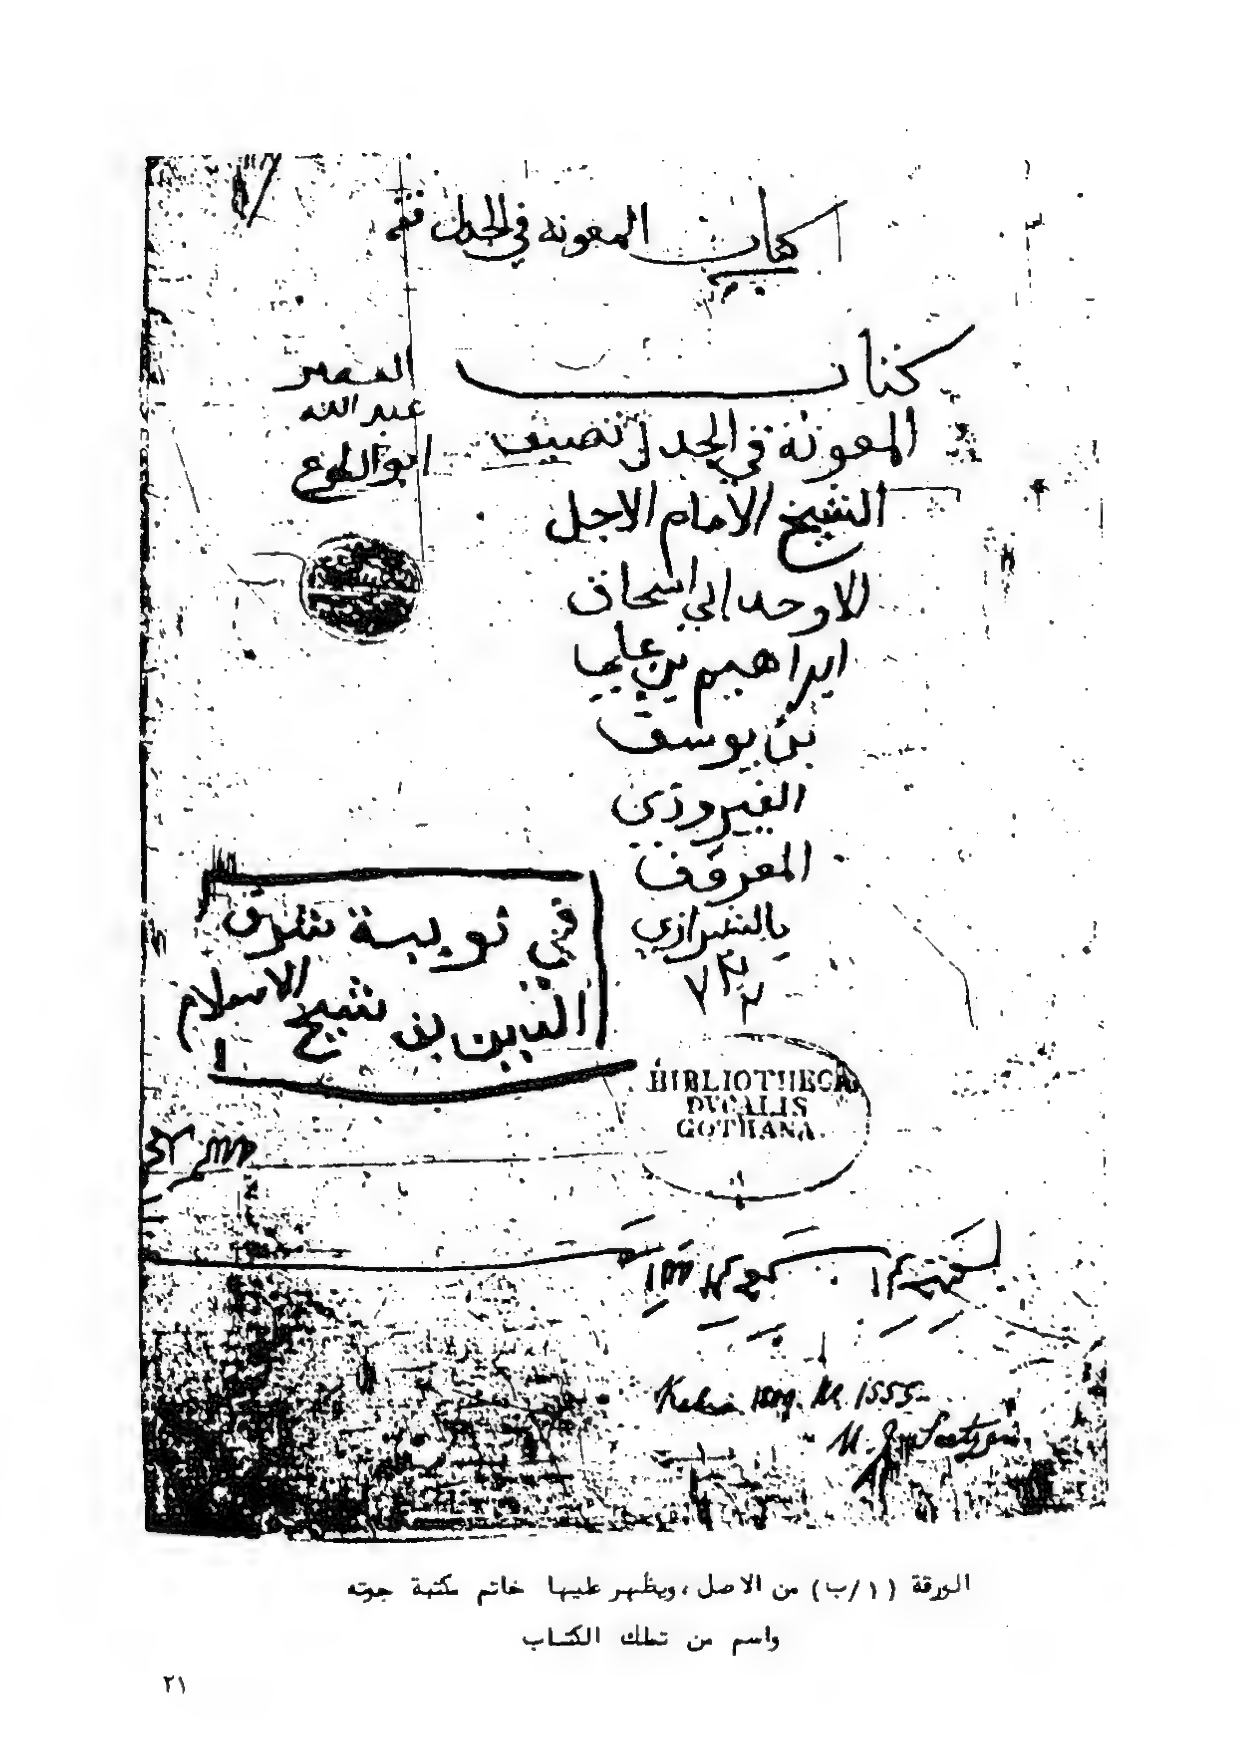 كتاب المعونة في الجدل فقه
كتاب
المعونة في الجدل تصنيف
الشيخ الامام الاجل
الاوحد ابي اسحاق
ابراهيم بن علي
بن يوسف
الفيروزي
المعروف
بالشيرازي
عبد الله
في نوبة شرف
الدين بن شيخ الاسلام
BIBLIOTHECA
DVCALIS
GOTHANA.
1809. N. 1555.
الورقة (١/ب) من الاصل ، ويظهر عليها خاتم مكتبة جوته
واسم من تملك الكتاب
٢١